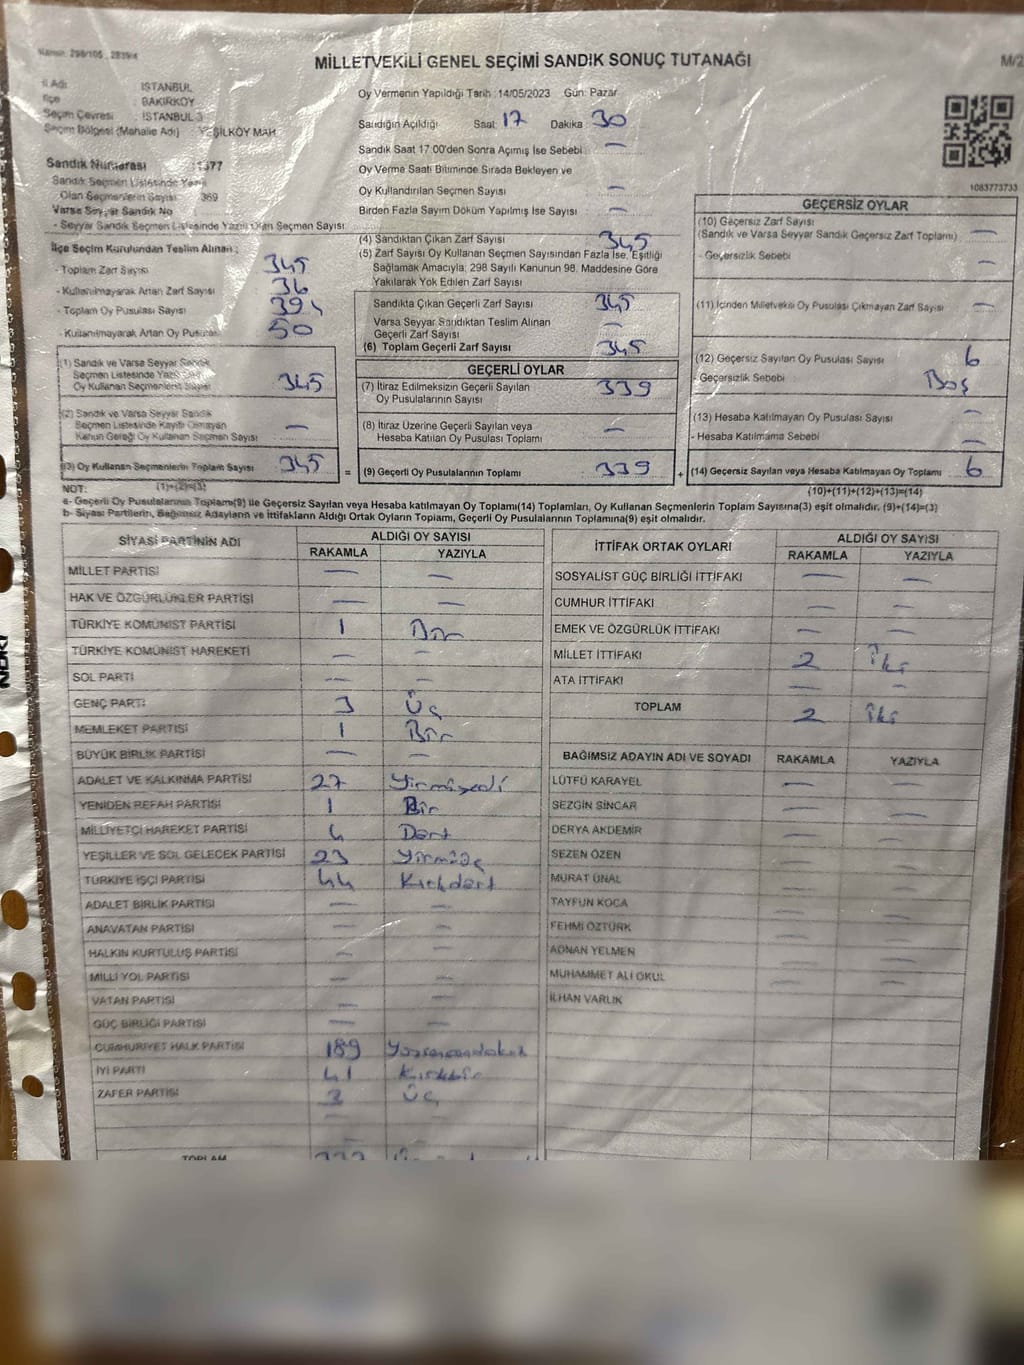 Kanun: 298/105 , 2839/4
MİLLETVEKİLİ GENEL SEÇİMİ SANDIK SONUÇ TUTANAĞI
M/2
İl Adı : İSTANBUL
İlçe : BAKIRKÖY
Seçim Çevresi : İSTANBUL 3
Seçim Bölgesi (Mahalle Adı) : YEŞİLKÖY MAH
Sandık Numarası : 1377
Sandık Seçmen Listesinde Yazılı
Olan Seçmenlerin Sayısı : 369
Varsa Seyyar Sandık No
- Seyyar Sandık Seçmen Listesinde Yazılı Olan Seçmen Sayısı
Oy Vermenin Yapıldığı Tarih :14/05/2023 Gün: Pazar
Sandığın Açıldığı Saat: 17 Dakika : 30
Sandık Saat 17:00'den Sonra Açılmış İse Sebebi : —
Oy Verme Saati Bitiminde Sırada Bekleyen ve
Oy Kullandırılan Seçmen Sayısı —
Birden Fazla Sayım Döküm Yapılmış İse Sayısı —
1083773733
İlçe Seçim Kurulundan Teslim Alınan ;
- Toplam Zarf Sayısı 345
- Kullanılmayarak Artan Zarf Sayısı : 36
- Toplam Oy Pusulası Sayısı :
- Kullanılmayarak Artan Oy Pusulası 50
(1) Sandık ve Varsa Seyyar Sandık
Seçmen Listesinde Yazılı
Oy Kullanan Seçmenlerin Sayısı 345
(2) Sandık ve Varsa Seyyar Sandık
Seçmen Listesinde Kayıtlı Olmayan
Kanun Gereği Oy Kullanan Seçmen Sayısı —
(3) Oy Kullanan Seçmenlerin Toplam Sayısı 345
(1)+(2)=(3)
(4) Sandıktan Çıkan Zarf Sayısı 345
(5) Zarf Sayısı Oy Kullanan Seçmen Sayısından Fazla İse, Eşitliği
Sağlamak Amacıyla; 298 Sayılı Kanunun 98. Maddesine Göre
Yakılarak Yok Edilen Zarf Sayısı
Sandıkta Çıkan Geçerli Zarf Sayısı 345
Varsa Seyyar Sandıktan Teslim Alınan
Geçerli Zarf Sayısı —
(6) Toplam Geçerli Zarf Sayısı 345
GEÇERLİ OYLAR
(7) İtiraz Edilmeksizin Geçerli Sayılan
Oy Pusulalarının Sayısı 339
(8) İtiraz Üzerine Geçerli Sayılan veya
Hesaba Katılan Oy Pusulası Toplamı —
= (9) Geçerli Oy Pusulalarının Toplamı 339
GEÇERSİZ OYLAR
(10) Geçersiz Zarf Sayısı
(Sandık ve Varsa Seyyar Sandık Geçersiz Zarf Toplamı) —
- Geçersizlik Sebebi —
(11) İçinden Milletvekili Oy Pusulası Çıkmayan Zarf Sayısı —
(12) Geçersiz Sayılan Oy Pusulası Sayısı 6
- Geçersizlik Sebebi Boş
(13) Hesaba Katılmayan Oy Pusulası Sayısı —
- Hesaba Katılmama Sebebi —
+ (14) Geçersiz Sayılan veya Hesaba Katılmayan Oy Toplamı 6
(10)+(11)+(12)+(13)=(14)
NOT:
a- Geçerli Oy Pusulalarının Toplamı(9) ile Geçersiz Sayılan veya Hesaba katılmayan Oy Toplamı(14) Toplamları, Oy Kullanan Seçmenlerin Toplam Sayısına(3) eşit olmalıdır. (9)+(14)=(3)
b- Siyasi Partilerin, Bağımsız Adayların ve İttifakların Aldığı Ortak Oyların Toplamı, Geçerli Oy Pusulalarının Toplamına(9) eşit olmalıdır.
SİYASİ PARTİNİN ADI
ALDIĞI OY SAYISI
RAKAMLA YAZIYLA
MİLLET PARTİSİ — —
HAK VE ÖZGÜRLÜKLER PARTİSİ — —
TÜRKİYE KOMÜNİST PARTİSİ 1 Bir
TÜRKİYE KOMÜNİST HAREKETİ — —
SOL PARTİ — —
GENÇ PARTİ 3 Üç
MEMLEKET PARTİSİ 1 Bir
BÜYÜK BİRLİK PARTİSİ — —
ADALET VE KALKINMA PARTİSİ 27 Yirmiyedi
YENİDEN REFAH PARTİSİ 1 Bir
MİLLİYETÇİ HAREKET PARTİSİ 4 Dört
YEŞİLLER VE SOL GELECEK PARTİSİ 23 Yirmiüç
TÜRKİYE İŞÇİ PARTİSİ 44 Kırkdört
ADALET BİRLİK PARTİSİ — —
ANAVATAN PARTİSİ — —
HALKIN KURTULUŞ PARTİSİ — —
MİLLİ YOL PARTİSİ — —
VATAN PARTİSİ — —
GÜÇ BİRLİĞİ PARTİSİ — —
CUMHURİYET HALK PARTİSİ 189 Yüzseksendokuz
İYİ PARTİ 41 Kırkbir
ZAFER PARTİSİ 3 Üç
— —
TOPLAM
İTTİFAK ORTAK OYLARI
ALDIĞI OY SAYISI
RAKAMLA YAZIYLA
SOSYALİST GÜÇ BİRLİĞİ İTTİFAKI — —
CUMHUR İTTİFAKI — —
EMEK VE ÖZGÜRLÜK İTTİFAKI — —
MİLLET İTTİFAKI 2 İki
ATA İTTİFAKI — —
TOPLAM 2 İki
BAĞIMSIZ ADAYIN ADI VE SOYADI RAKAMLA YAZIYLA
LÜTFÜ KARAYEL — —
SEZGİN SİNCAR — —
DERYA AKDEMİR — —
SEZEN ÖZEN — —
MURAT ÜNAL — —
TAYFUN KOCA — —
FEHMİ ÖZTÜRK — —
ADNAN YELMEN — —
MUHAMMET ALİ OKUL — —
İLHAN VARLIK